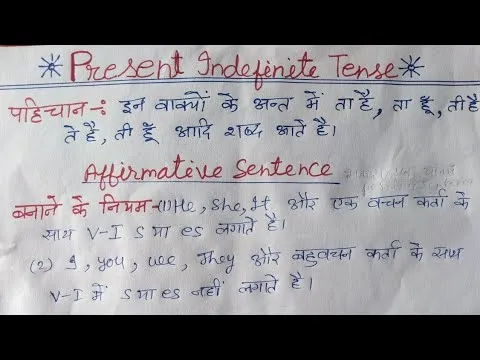 Present Indefinite Tense
पहिचान -: इन वाक्यों के अन्त में ता है, ता हूँ, ती है
ते है, ती हूँ आदि शब्द आते है।
Affirmative Sentence
बनाने के नियम-(1) He, She, It और एक वचन कर्ता के
साथ V-I S या es लगाते है।
(2) I, you, we, they और बहुवचन कर्ता के साथ
V-I में S या es नहीं लगाते है।